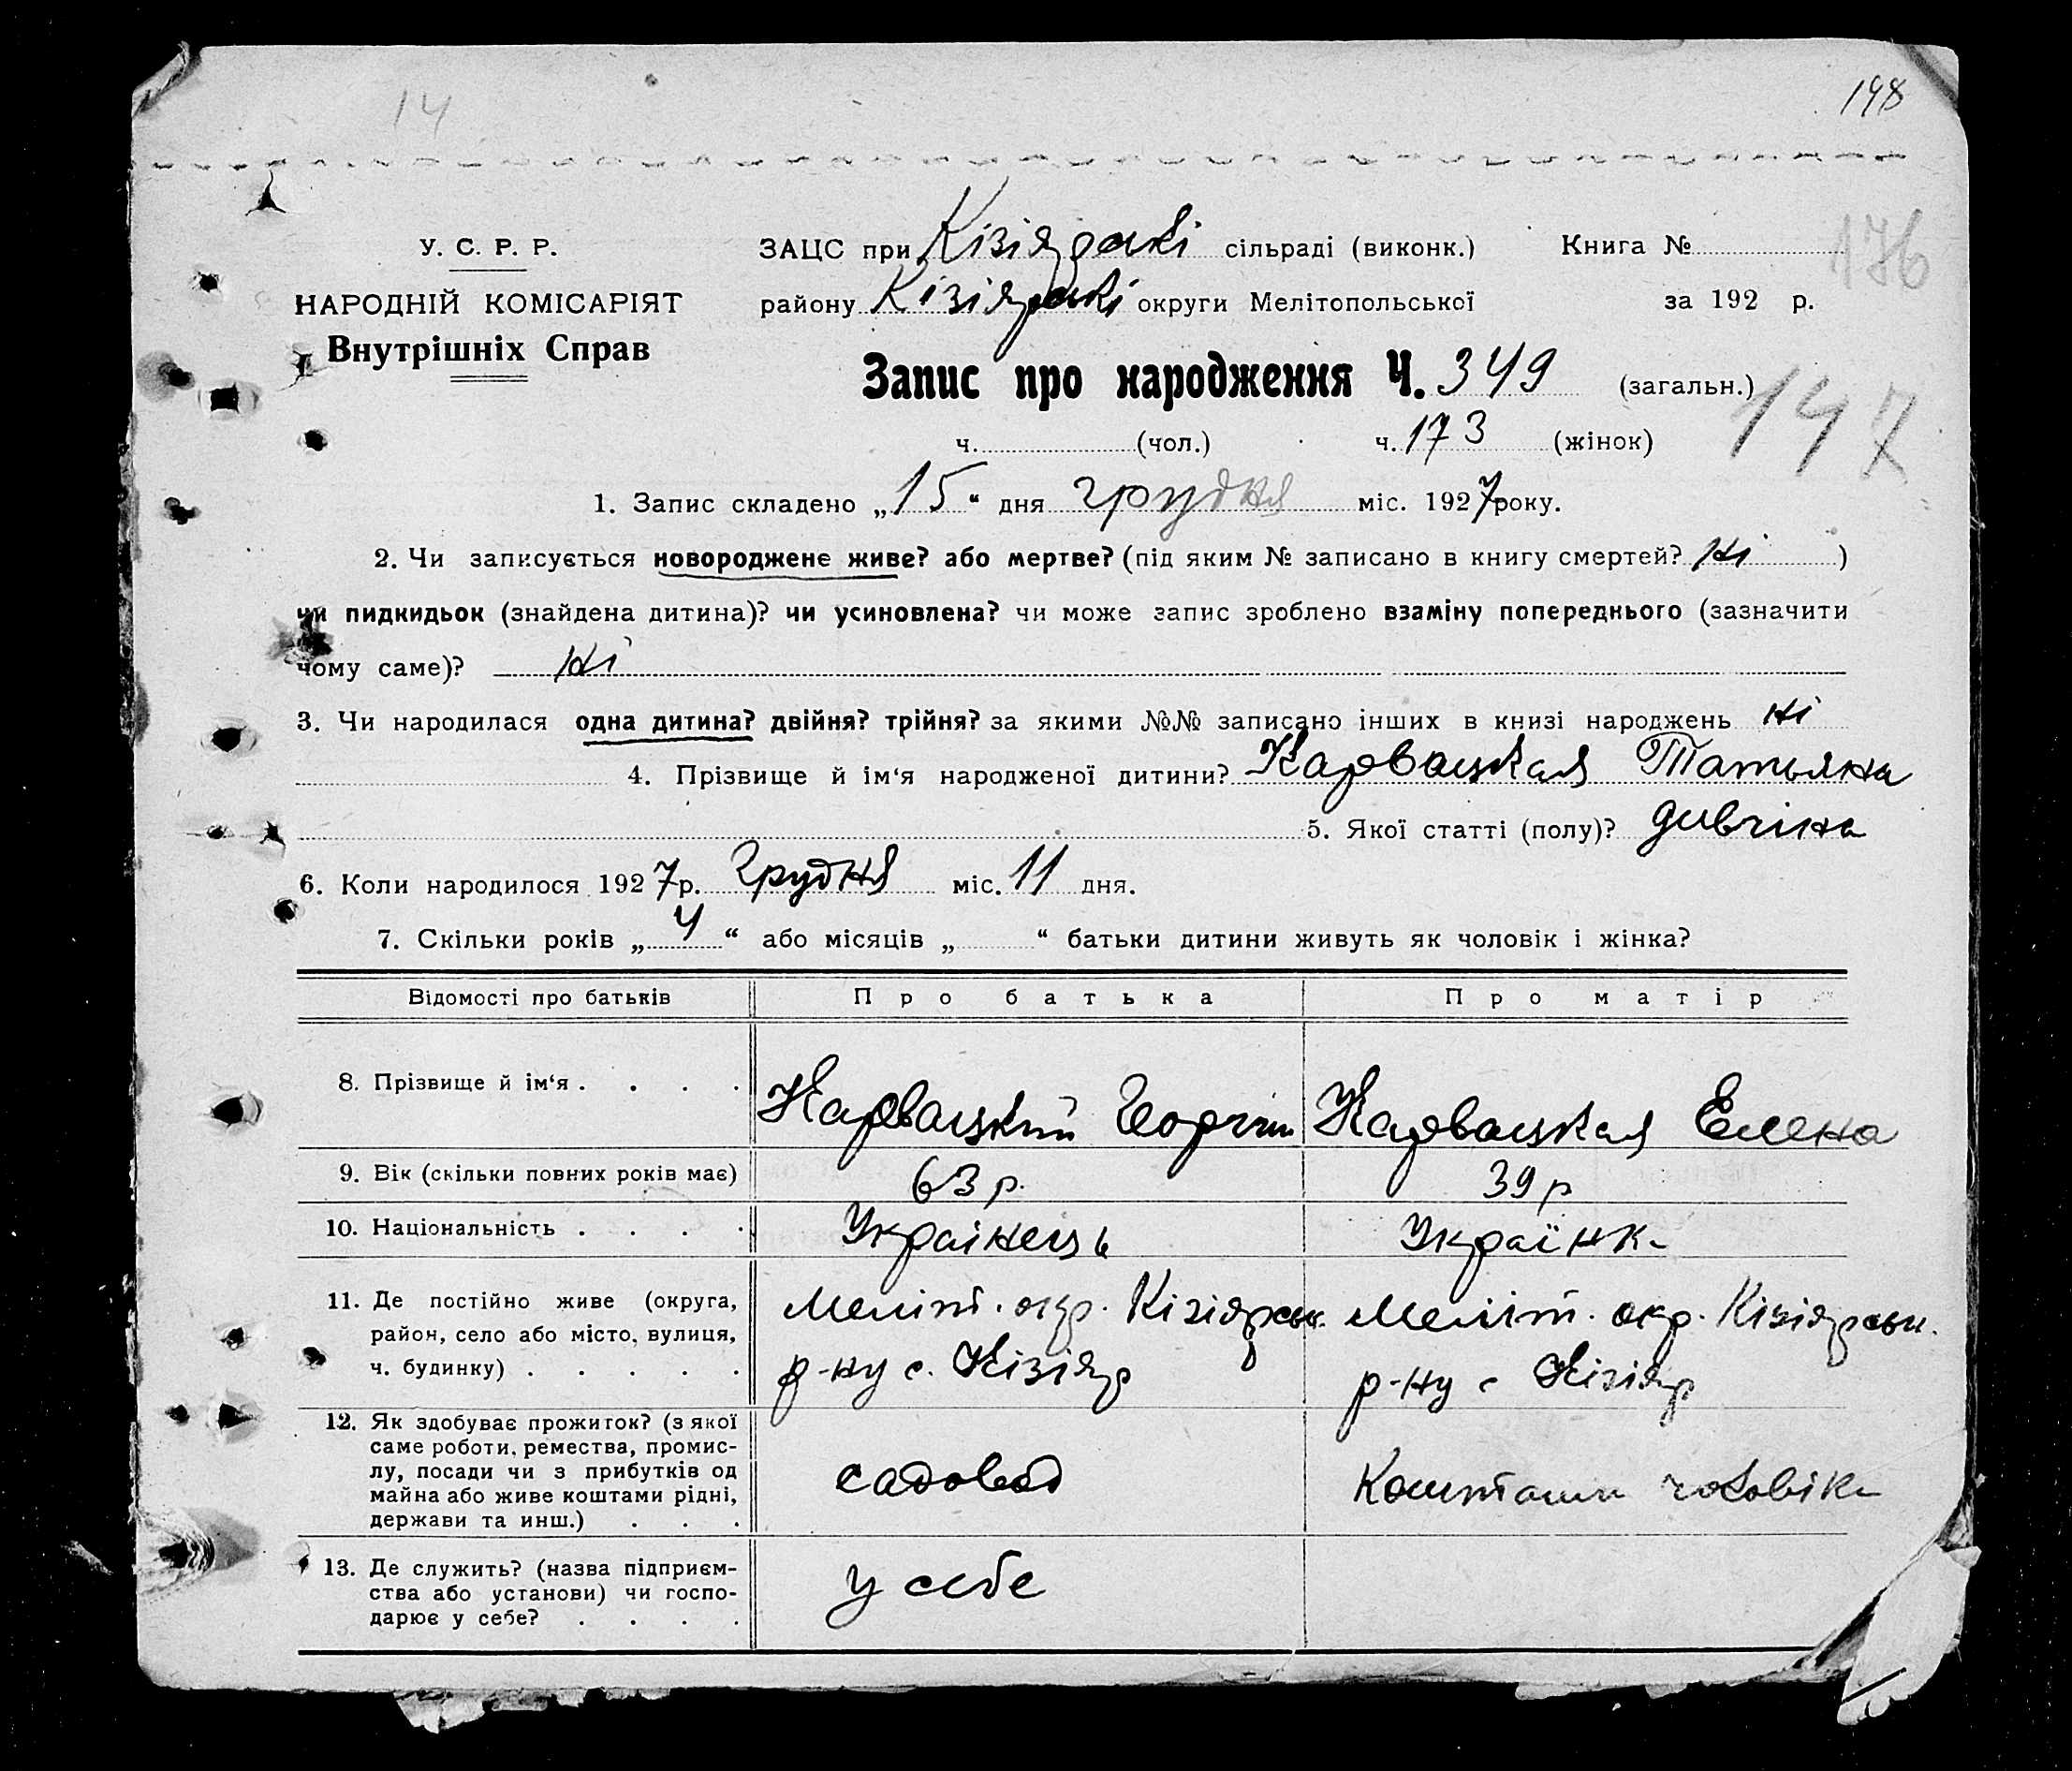 14
198
У. С. Р. Р.
НАРОДНІЙ КОМІСАРІЯТ
Внутрішніх Справ
ЗАЦС при Кізіярскі сільраді (виконк.) Книга №
176
району Кізіярскі округи Мелітопольської за 192 р.
Запис про народження Ч. 349 (загальн.)
147
ч. (чол.) ч. 173 (жінок)
1. Запис складено „15“ дня грудня міс. 1927 року.
2. Чи записується новороджене живе? або мертве? (під яким № записано в книгу смертей? Ні )
чи пидкидьок (знайдена дитина)? чи усиновлена? чи може запис зроблено взаміну попереднього (зазначити
чому саме)? Ні
3. Чи народилася одна дитина? двійня? трійня? за якими №№ записано інших в книзі народжень Ні
4. Прізвище й ім‘я народженої дитини? Карвацкая Татьяна
5. Якої статті (полу)? дивчина
6. Коли народилося 1927 р. Грудня міс. 11 дня.
7. Скільки років „4“ або місяців „ “ батьки дитини живуть як чоловік і жінка?
Відомості про батьків Про батька Про матір
8. Прізвище й ім‘я . . . . Карвацкий Георгий Карвацкая Елена
9. Вік (скільки повних років має) 63 р. 39 р
10. Національність . . . . Українець Українк
11. Де постійно живе (округа,
район, село або місто, вулиця,
ч. будинку) . . . . .
Меліт. окр. Кізіярськ.
р-ну с. Кізіяр
Меліт. окр. Кізіярськ.
р-ну с Кізіяр
12. Як здобуває прожиток? (з якої
саме роботи, ремества, промис-
лу, посади чи з прибутків од
майна або живе коштами рідні,
держави та инш.) . . .
садовод
Коштами чоловіка
13. Де служить? (назва підприєм-
ства або установи) чи госпо-
дарює у себе? . . . .
у себе